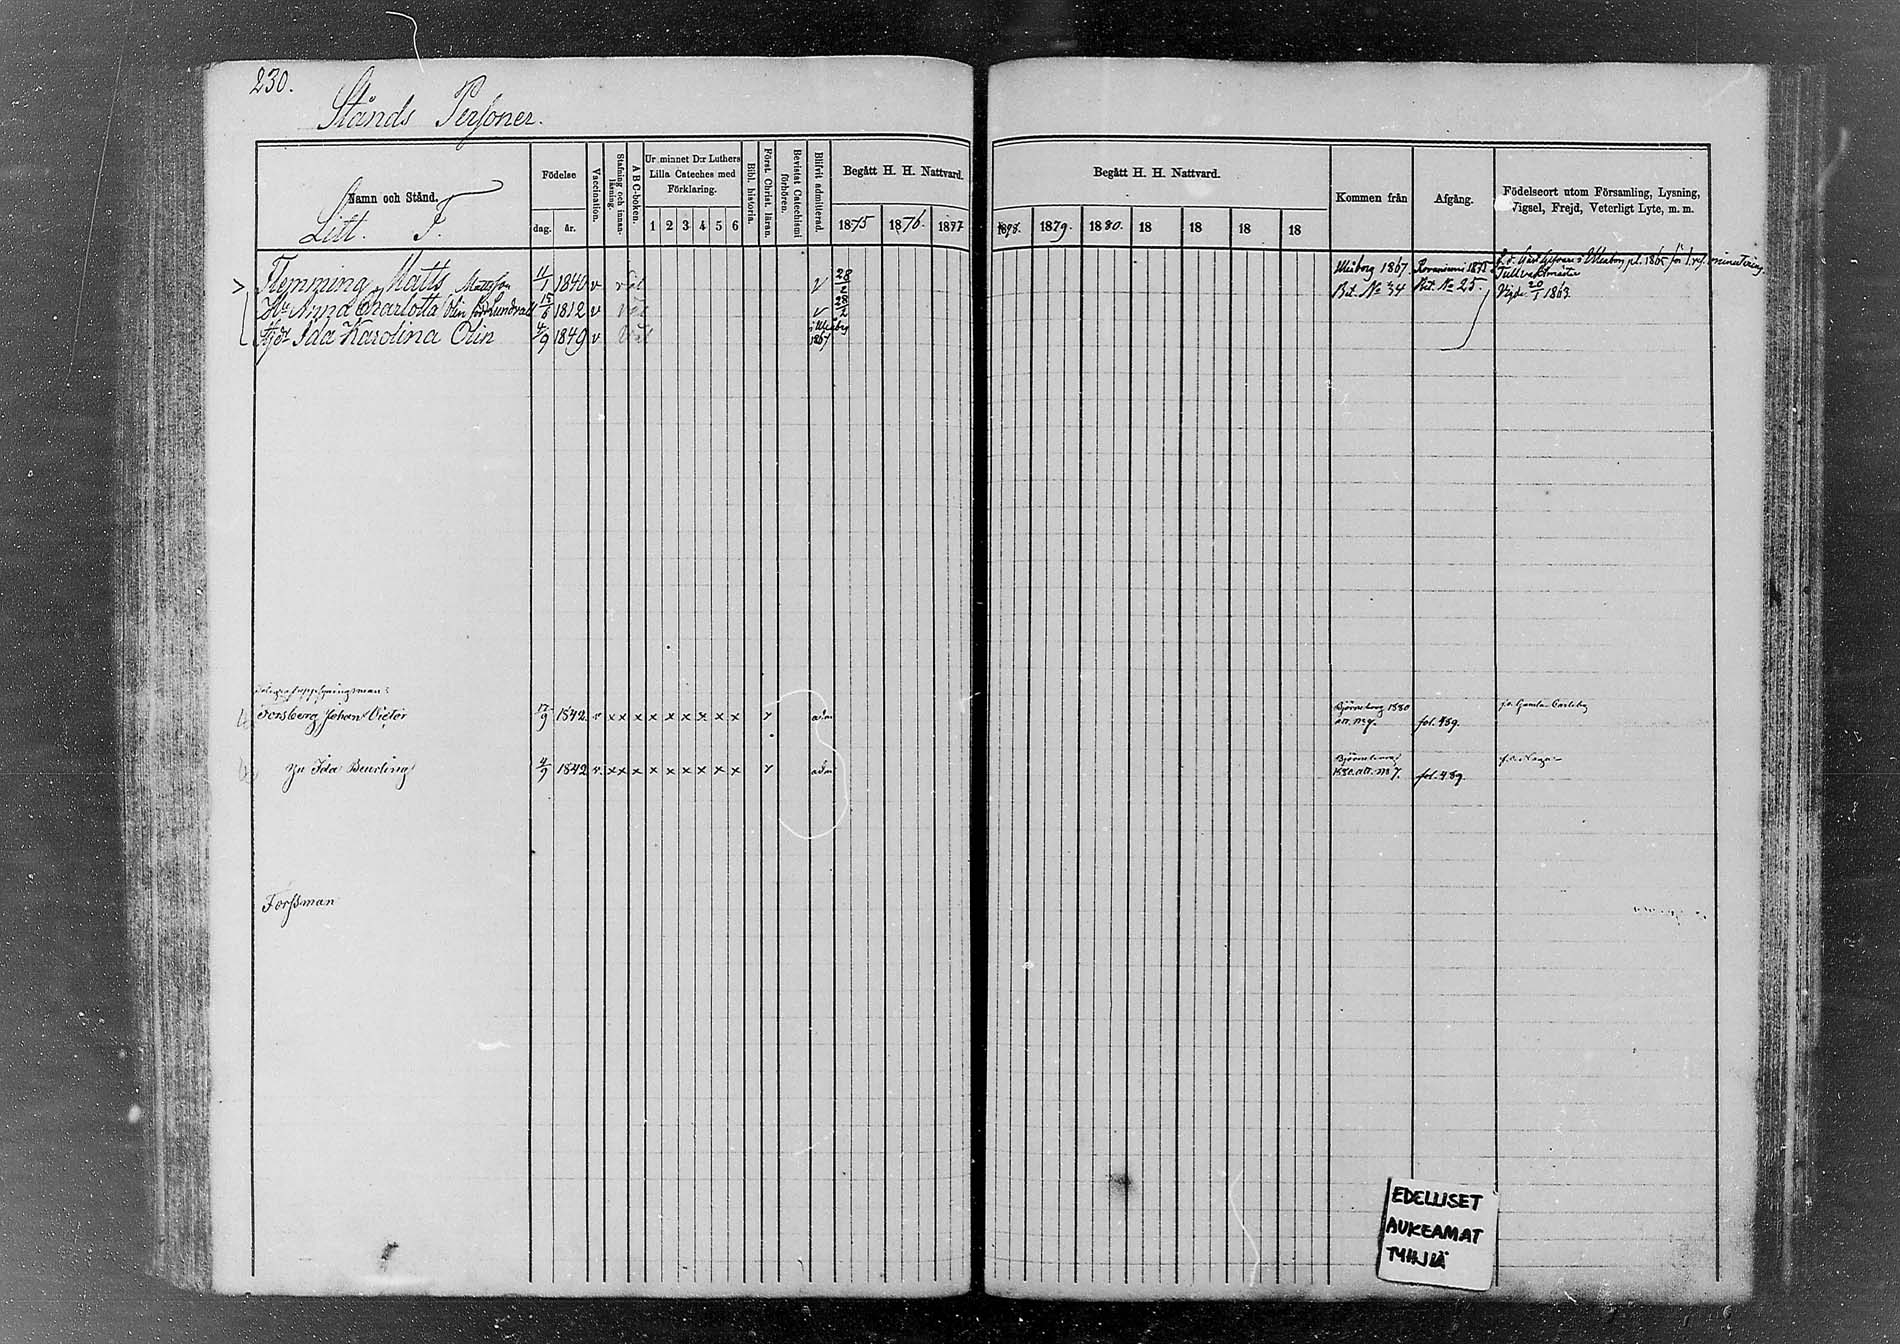 230.
Stånds Personer.
Namn och Stånd.
Litt. F.
Födelse
dag. år.
Vaccination.
Stafning och innanläsning.
A B C-boken.
Ur minnet D:r Luthers
Lilla Cateches med
Förklaring.
1 2 3 4 5 6
Bibl. historia.
Först. Christ. läran.
Bevistat Catechismi förhören.
Blifvit admitterad.
Begått H. H. Nattvard.
1875 1876. 1877
Begått H. H. Nattvard.
1878. 1879. 1880. 18 18 18 18
Kommen från
Afgång.
Födelseort utom Församling, Lysning,
Vigsel, Frejd, Veterligt Lyte, m. m.
Flemming, Matts Mattsson 11/1 1840 v v 28/2 Uleåborg 1867. Rovaniemi 1875
Bet. No 34 Bet. No 25. Tullvaktmästare
Hu Anna Charlotta Olin född Lundvall 1812 v v 28/2 Vigde 20/1 1863
Ida Karolina Olin 4/9 1849 v i Uleåborg 1867
Forsberg Johan Victor 17/9 1842 v x x x x x x x x adm Björneborg 1880 fol. 489. Gamla Carleby
Ida Beurling 4/9 1842 v. x x x x x x x x adm Björneborg 1880. att. No 7. fol. 489.
Forssman
EDELLISET
AUKEAMAT
TYHJIÄ